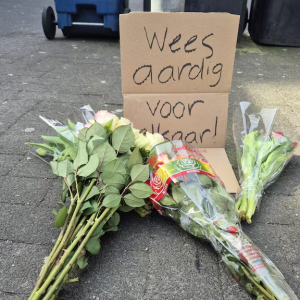 Wees
aardig
voor
elkaar!